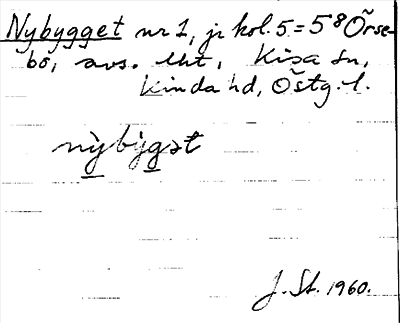 Nybygget nr 1, jr kol. 5 = 5⁸ Örse-
bo, avs. lht, Kisa sn,
Kinda hd, Östg. l.
nỳbỳgət
J. St. 1960.